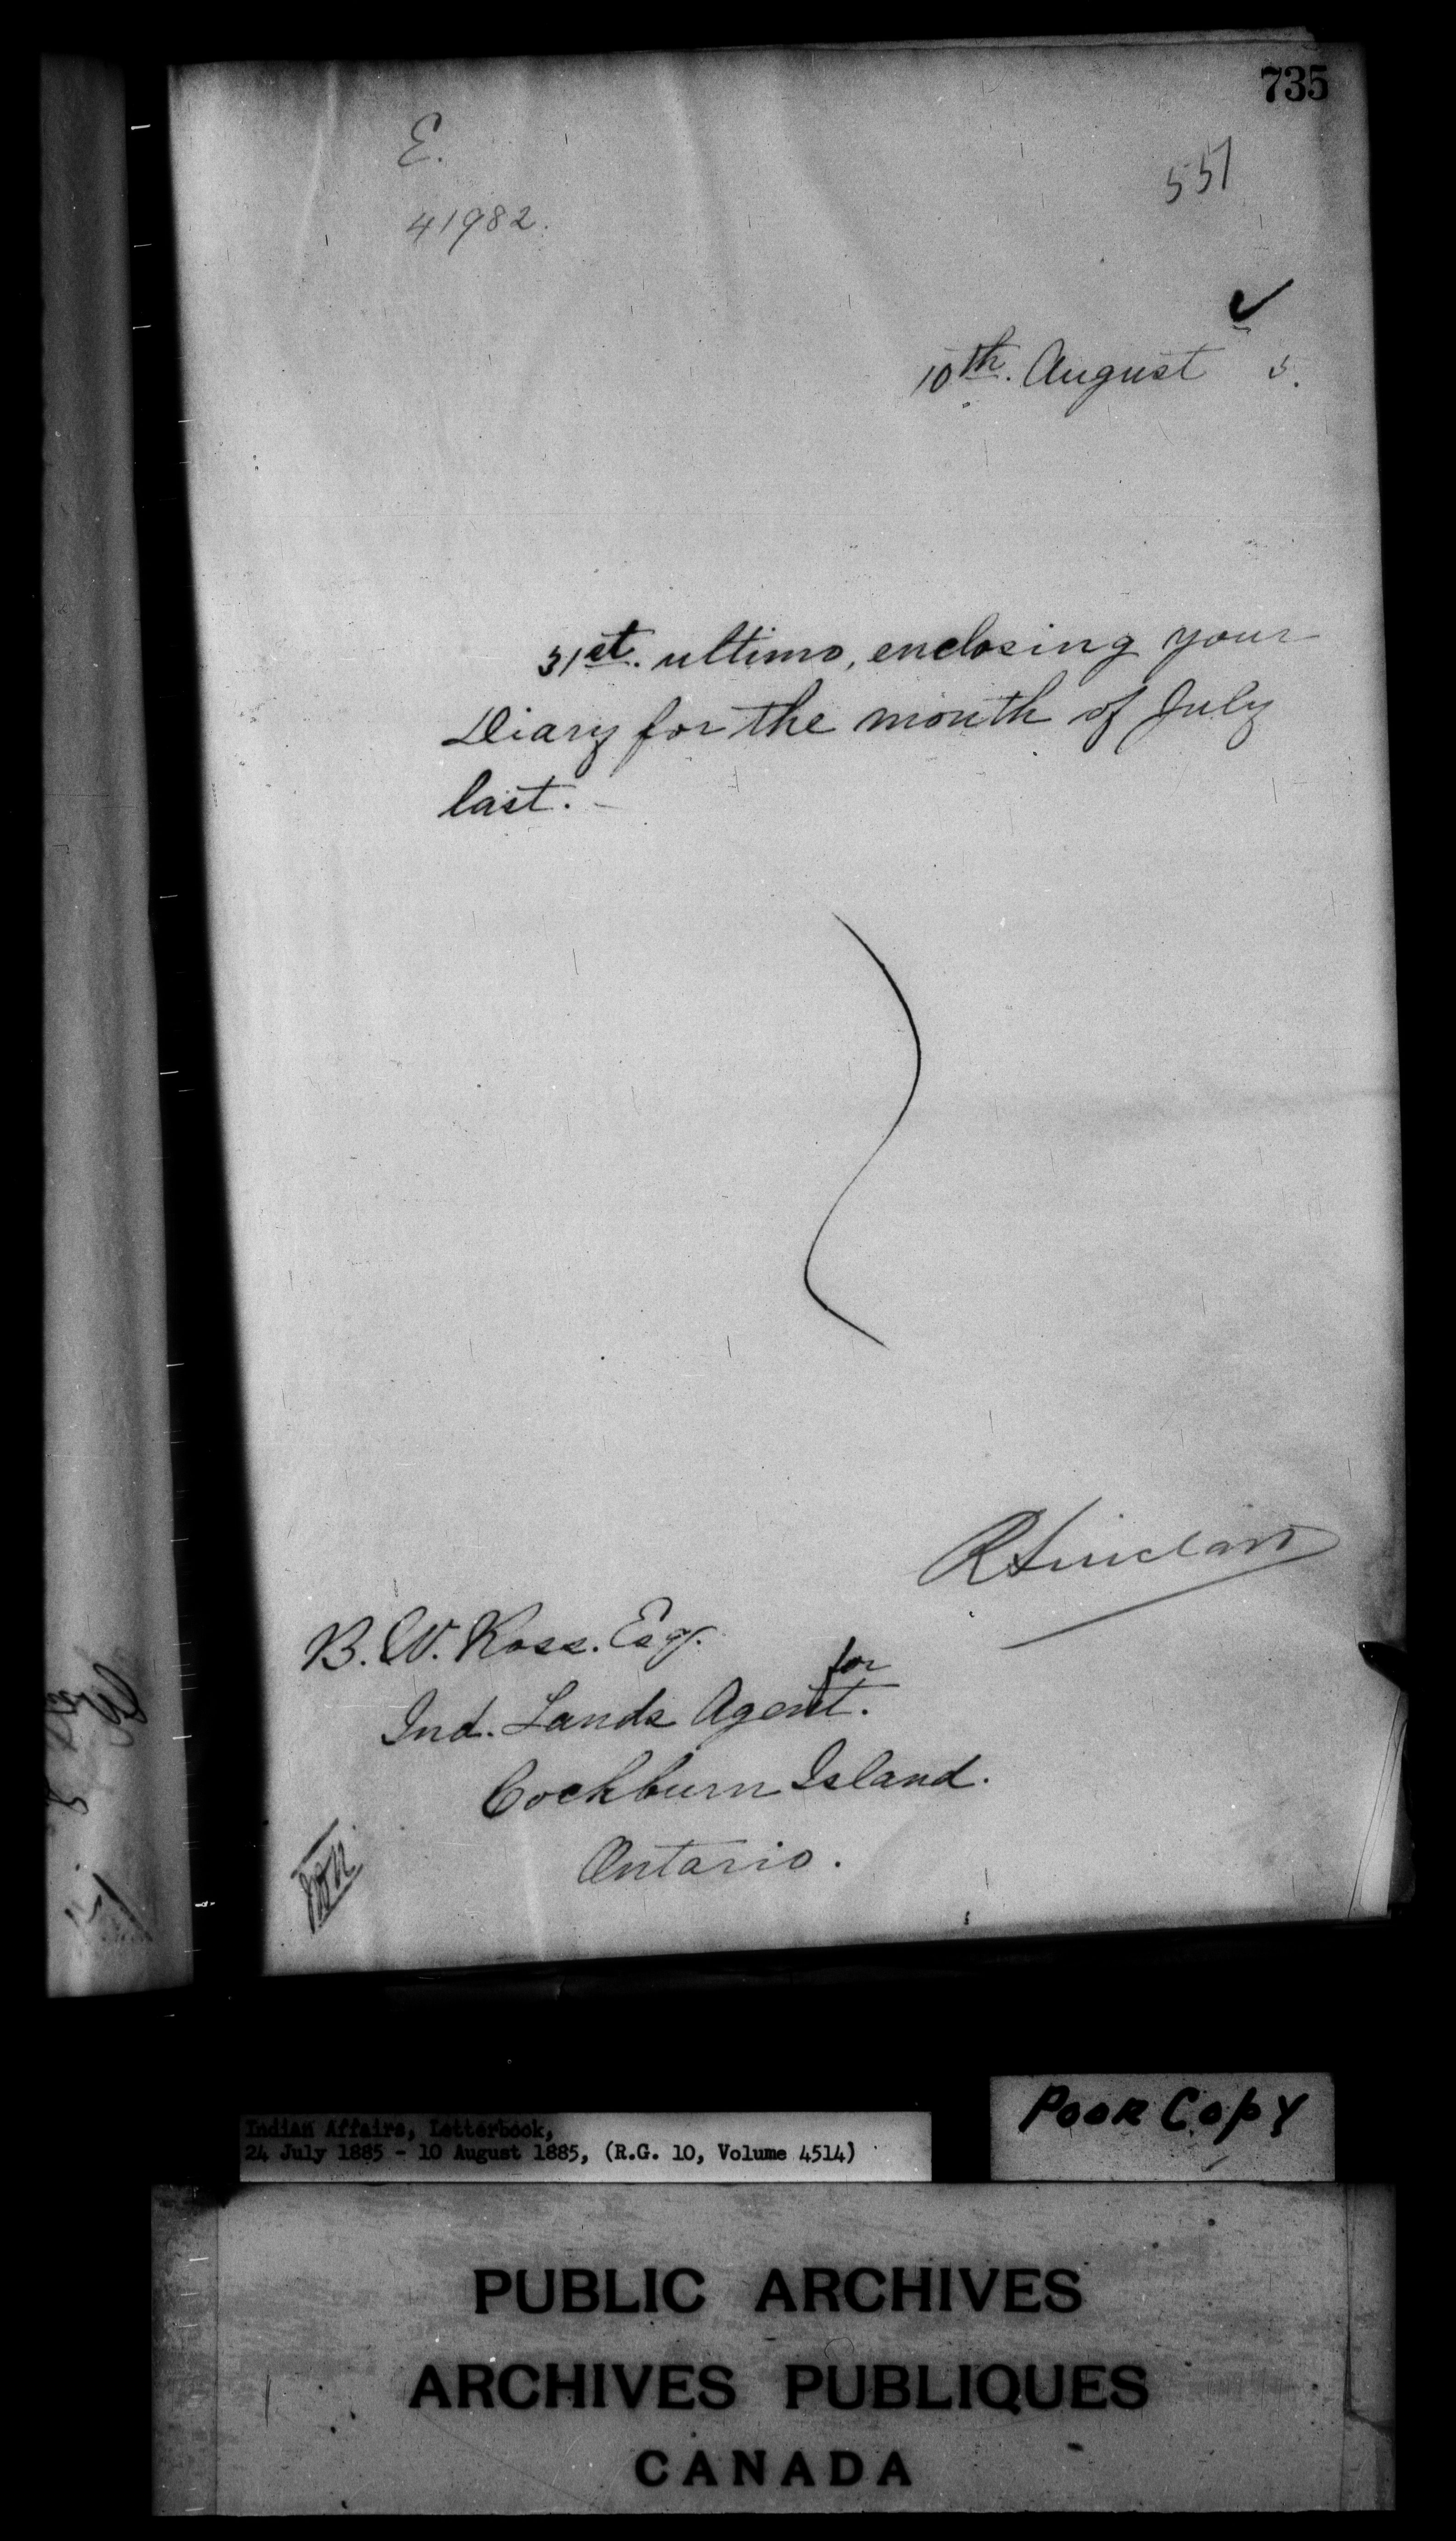 735
E.
551
41982.
10th. August 5.
31st. ultimo, enclosing your
Diary for the month of July
last.
R Sinclair
B. W. Ross. Esq.
for
Ind. Lands Agent.
Cockburn Island.
Ontario.
Poor Copy
Indian Affairs, Letterbook,
24 July 1885 - 10 August 1885, (R.G. 10, Volume 4514)
PUBLIC ARCHIVES
ARCHIVES PUBLIQUES
CANADA